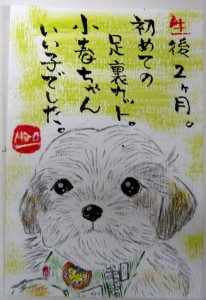 生後2ヶ月。
初めての
足裏カット。
小春ちゃん
いい子でした。